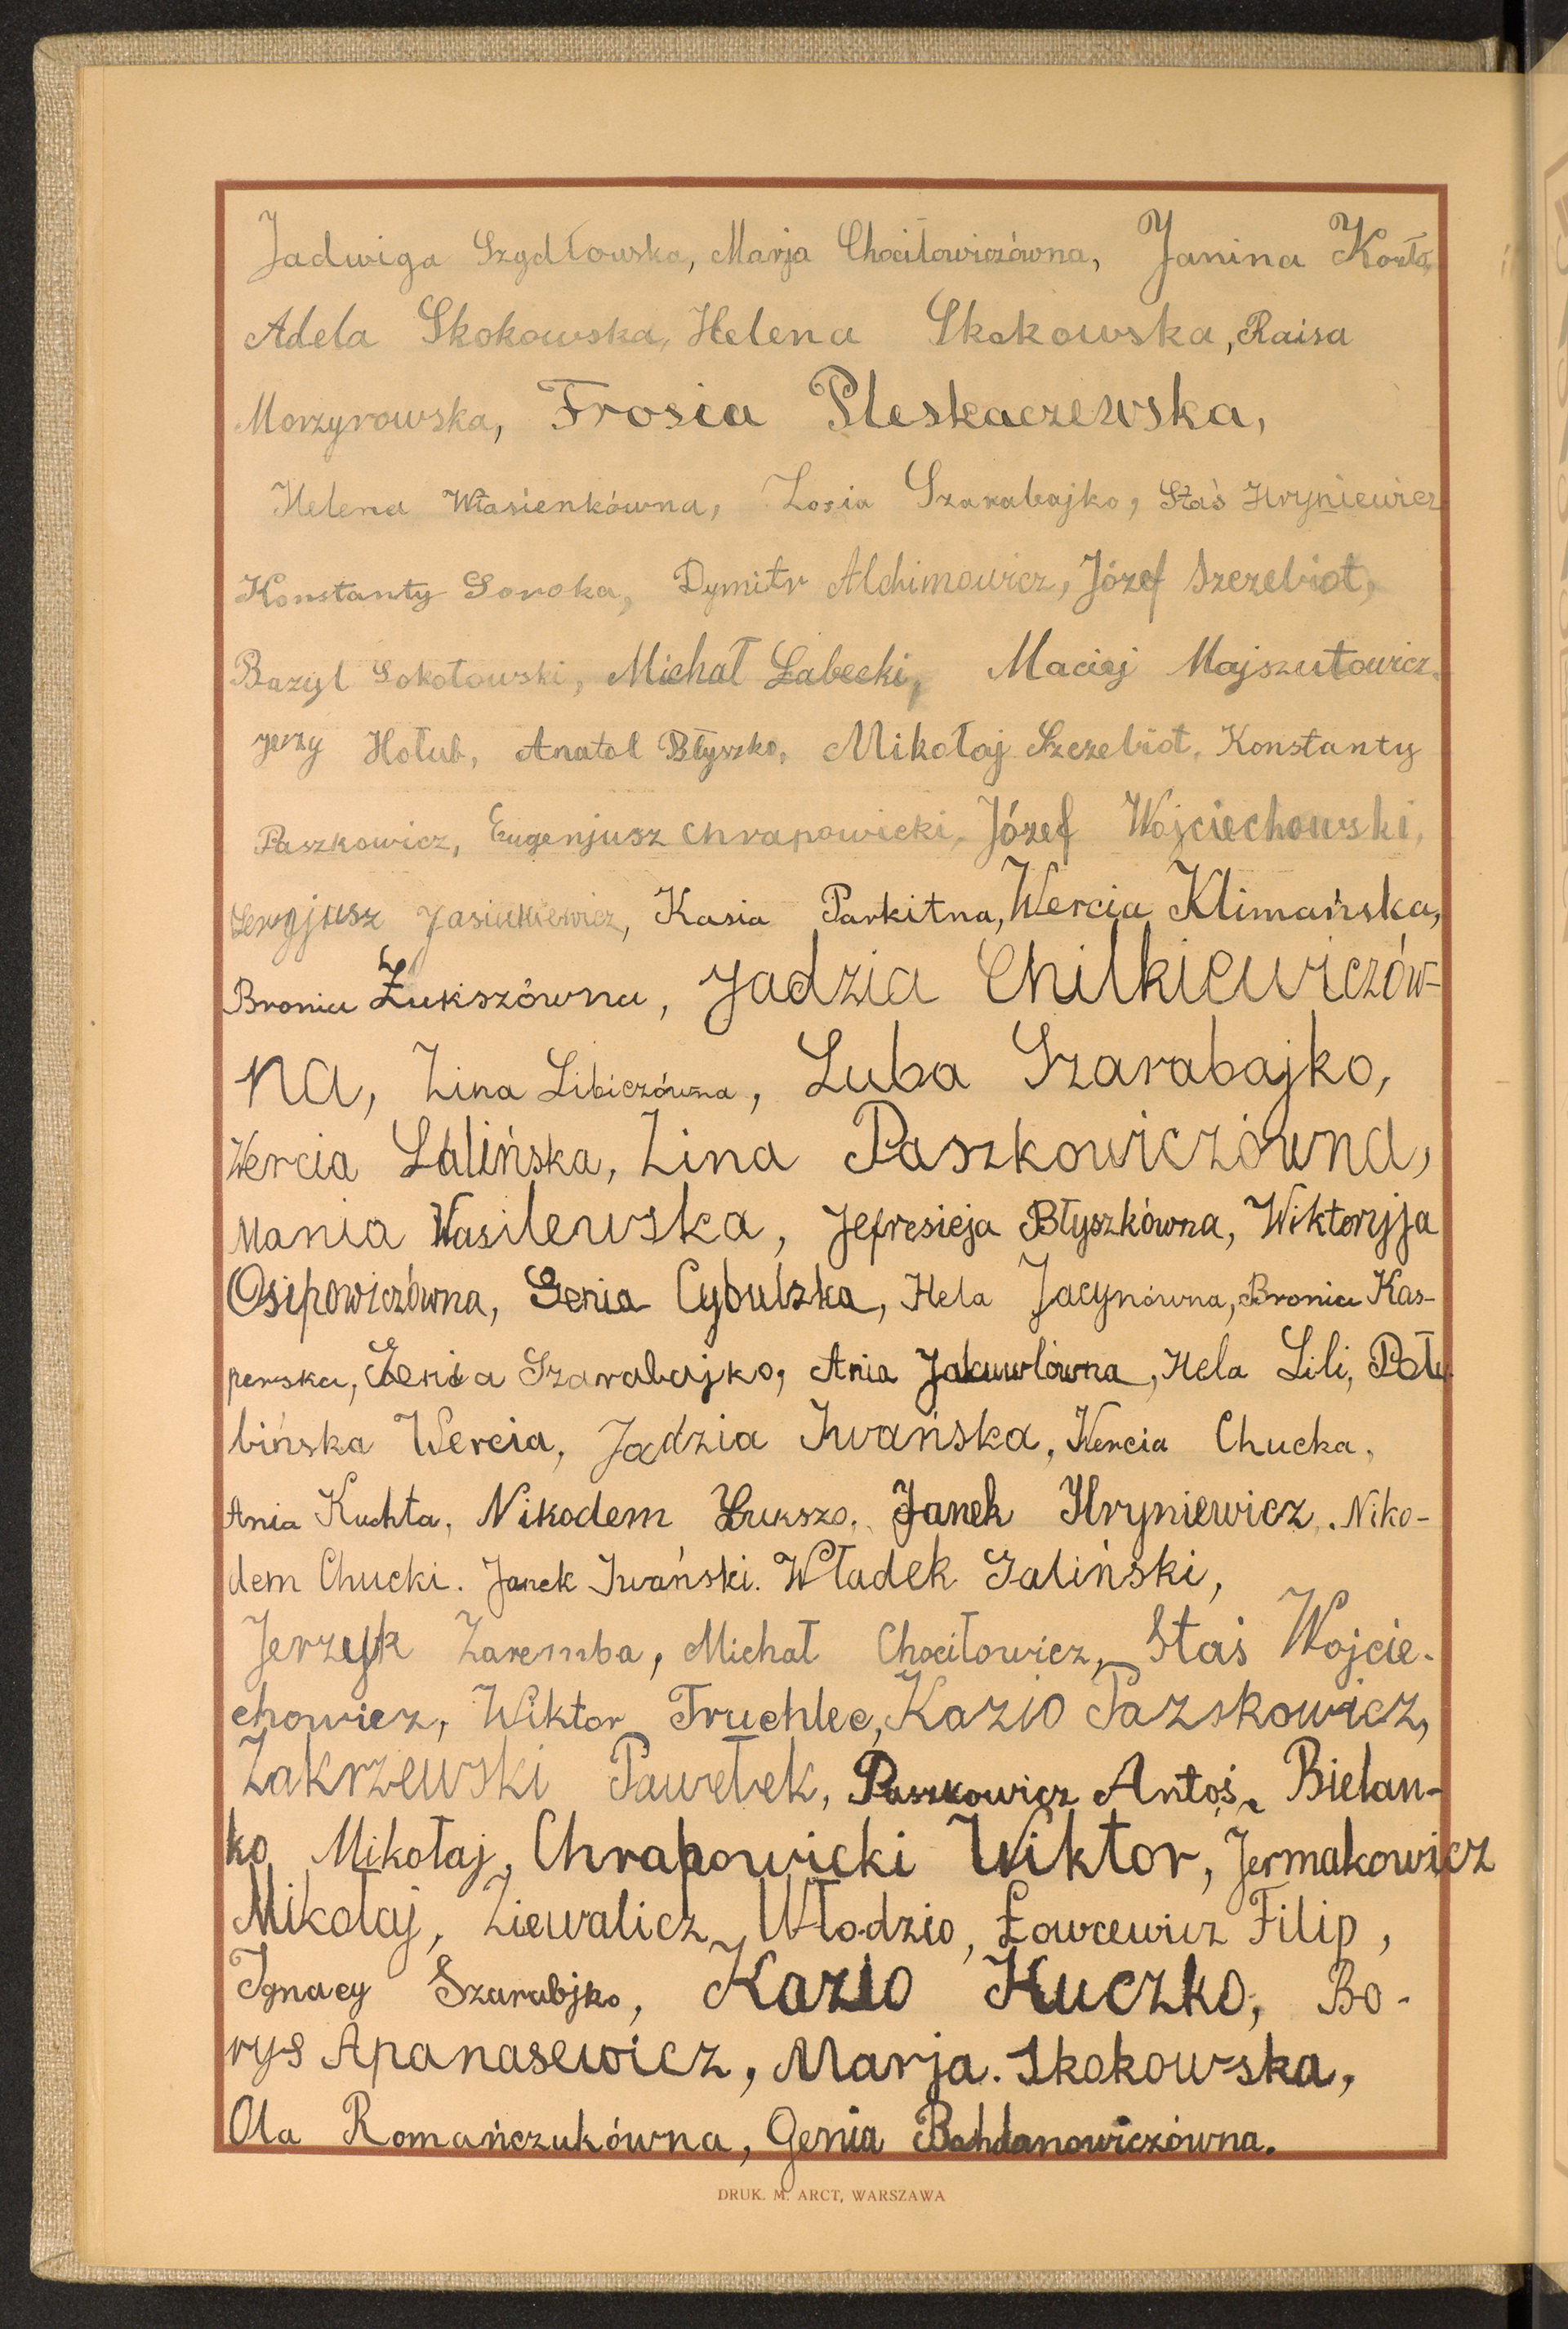 Jadwiga Szydłowska, Marja Chociłowiczówna, Janina
Adela Skokowska, Helena Skokowska, Raisa
Morzyrowska, Frosia Pleskaczewska,
Helena Własienkówna, Zosia Szarabajko, Staś Hryniewicz
Konstanty Soroka, Dymitr Alchimowicz, Józef Szczebiot,
Bazyl Sokołowski, Michał Łabecki, Maciej Majszutowicz,
Jerzy Hołub, Anatol Błyszko, Mikołaj Szczebiot, Konstanty
Paszkowicz, Eugenjusz Chrapowicki, Józef Wojciechowski,
Sergjusz Jasiukiewicz, Kasia Parkitna, Wercia Klimańska,
Bronia Łukszówna, Jadzia Chilkiewiczów-
na, Zina Libiczówna, Luba Szarabajko,
Wercia Salińska, Zina Paszkowiczówna,
Mania Wasilewska, Jefresieja Błyszkówna, Wiktoryja
Osipowiczówna, Genia Cybulska, Hela Jacynówna, Bronia Kas-
perska, Żenia Szarabajko, Ania Jakuwlówna, Hela Lili, Poły-
bińska Wercia, Jadzia Iwańska, Wercia Chucka,
Ania Kuchta, Nikodem Łukszo, Janek Hryniewicz, Niko-
dem Chucki. Janek Iwański. Władek Saliński,
Jerzyk Zaremba, Michał Chociłowicz, Staś Wojcie-
chowicz, Wiktor Truchlec, Kazio Pazskowicz,
Zakrzewski Pawełek, Paszkowicz Antoś, Bielan-
ko Mikołaj, Chrapowicki Wiktor, Jermakowicz
Mikołaj, Ziewalicz Włodzio, Łowcewicz Filip,
Ignacy Szarabjko, Kazio Kuczko, Bo-
rys Apanasewicz, Marja. Skokowska,
Ola Romańczukówna, Genia Bohdanowiczówna.
DRUK. M. ARCT, WARSZAWA